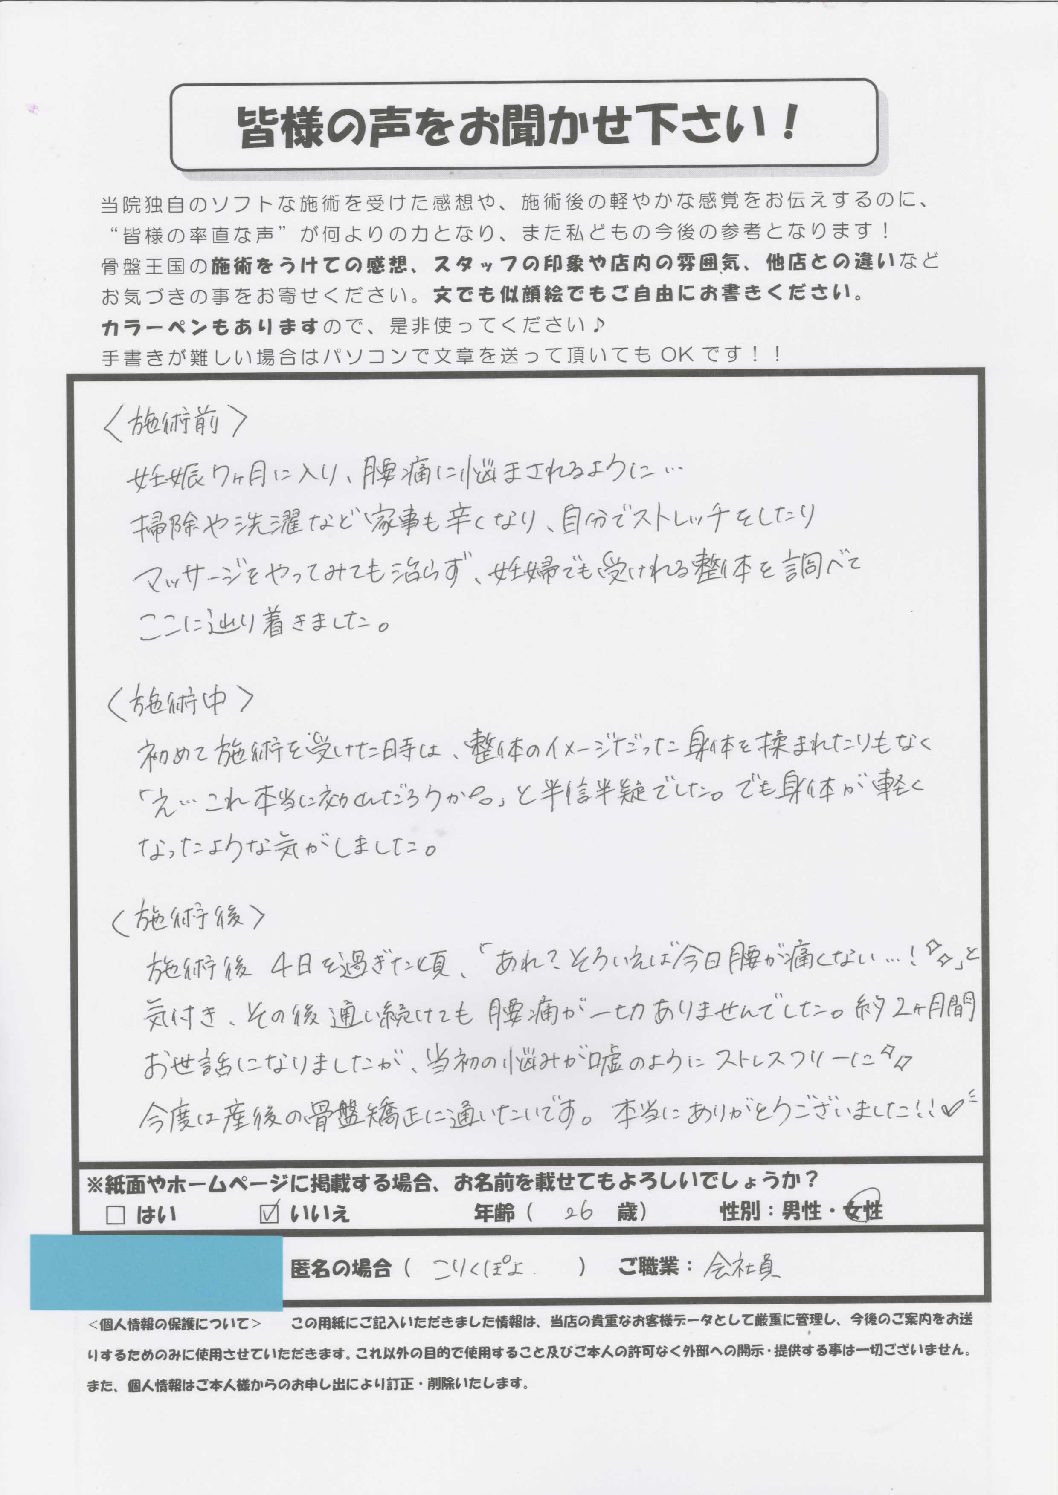 皆様の声をお聞かせ下さい！
当院独自のソフトな施術を受けた感想や、施術後の軽やかな感覚をお伝えするのに、
“皆様の率直な声”が何よりの力となり、また私どもの今後の参考となります！
骨盤王国の施術をうけての感想、スタッフの印象や店内の雰囲気、他店との違いなど
お気づきの事をお寄せください。文でも似顔絵でもご自由にお書きください。
カラーペンもありますので、是非使ってください♪
手書きが難しい場合はパソコンで文章を送って頂いてもOKです！！
〈施術前〉
妊娠7ヶ月に入り、腰痛に悩まされるように…
掃除や洗濯など家事も辛くなり、自分でストレッチをしたり
マッサージをやってみても治らず、妊婦でも受けれる整体を調べて
ここに辿り着きました。
〈施術中〉
初めて施術を受けた時は、整体のイメージだった身体を揉まれたりもなく
「え…これ本当に効くんだろうか。」と半信半疑でした。でも身体が軽く
なったような気がしました。
〈施術後〉
施術後4日を過ぎた頃、「あれ？そういえば今日腰が痛くない…！✨」と
気付き、その後通い続けても腰痛が一切ありませんでした。約2ヶ月間
お世話になりましたが、当初の悩みが嘘のようにストレスフリーに✨
今度は産後の骨盤矯正に通いたいです。本当にありがとうございました!!♡
※紙面やホームページに掲載する場合、お名前を載せてもよろしいでしょうか？
□ はい ☑ いいえ 年齢（ 26 歳） 性別：男性・女性
匿名の場合（ こりくぽよ ） ご職業：会社員
＜個人情報の保護について＞ この用紙にご記入いただきました情報は、当店の貴重なお客様データとして厳重に管理し、今後のご案内をお送
りするためのみに使用させていただきます。これ以外の目的で使用すること及びご本人の許可なく外部への開示・提供する事は一切ございません。
また、個人情報はご本人様からのお申し出により訂正・削除いたします。